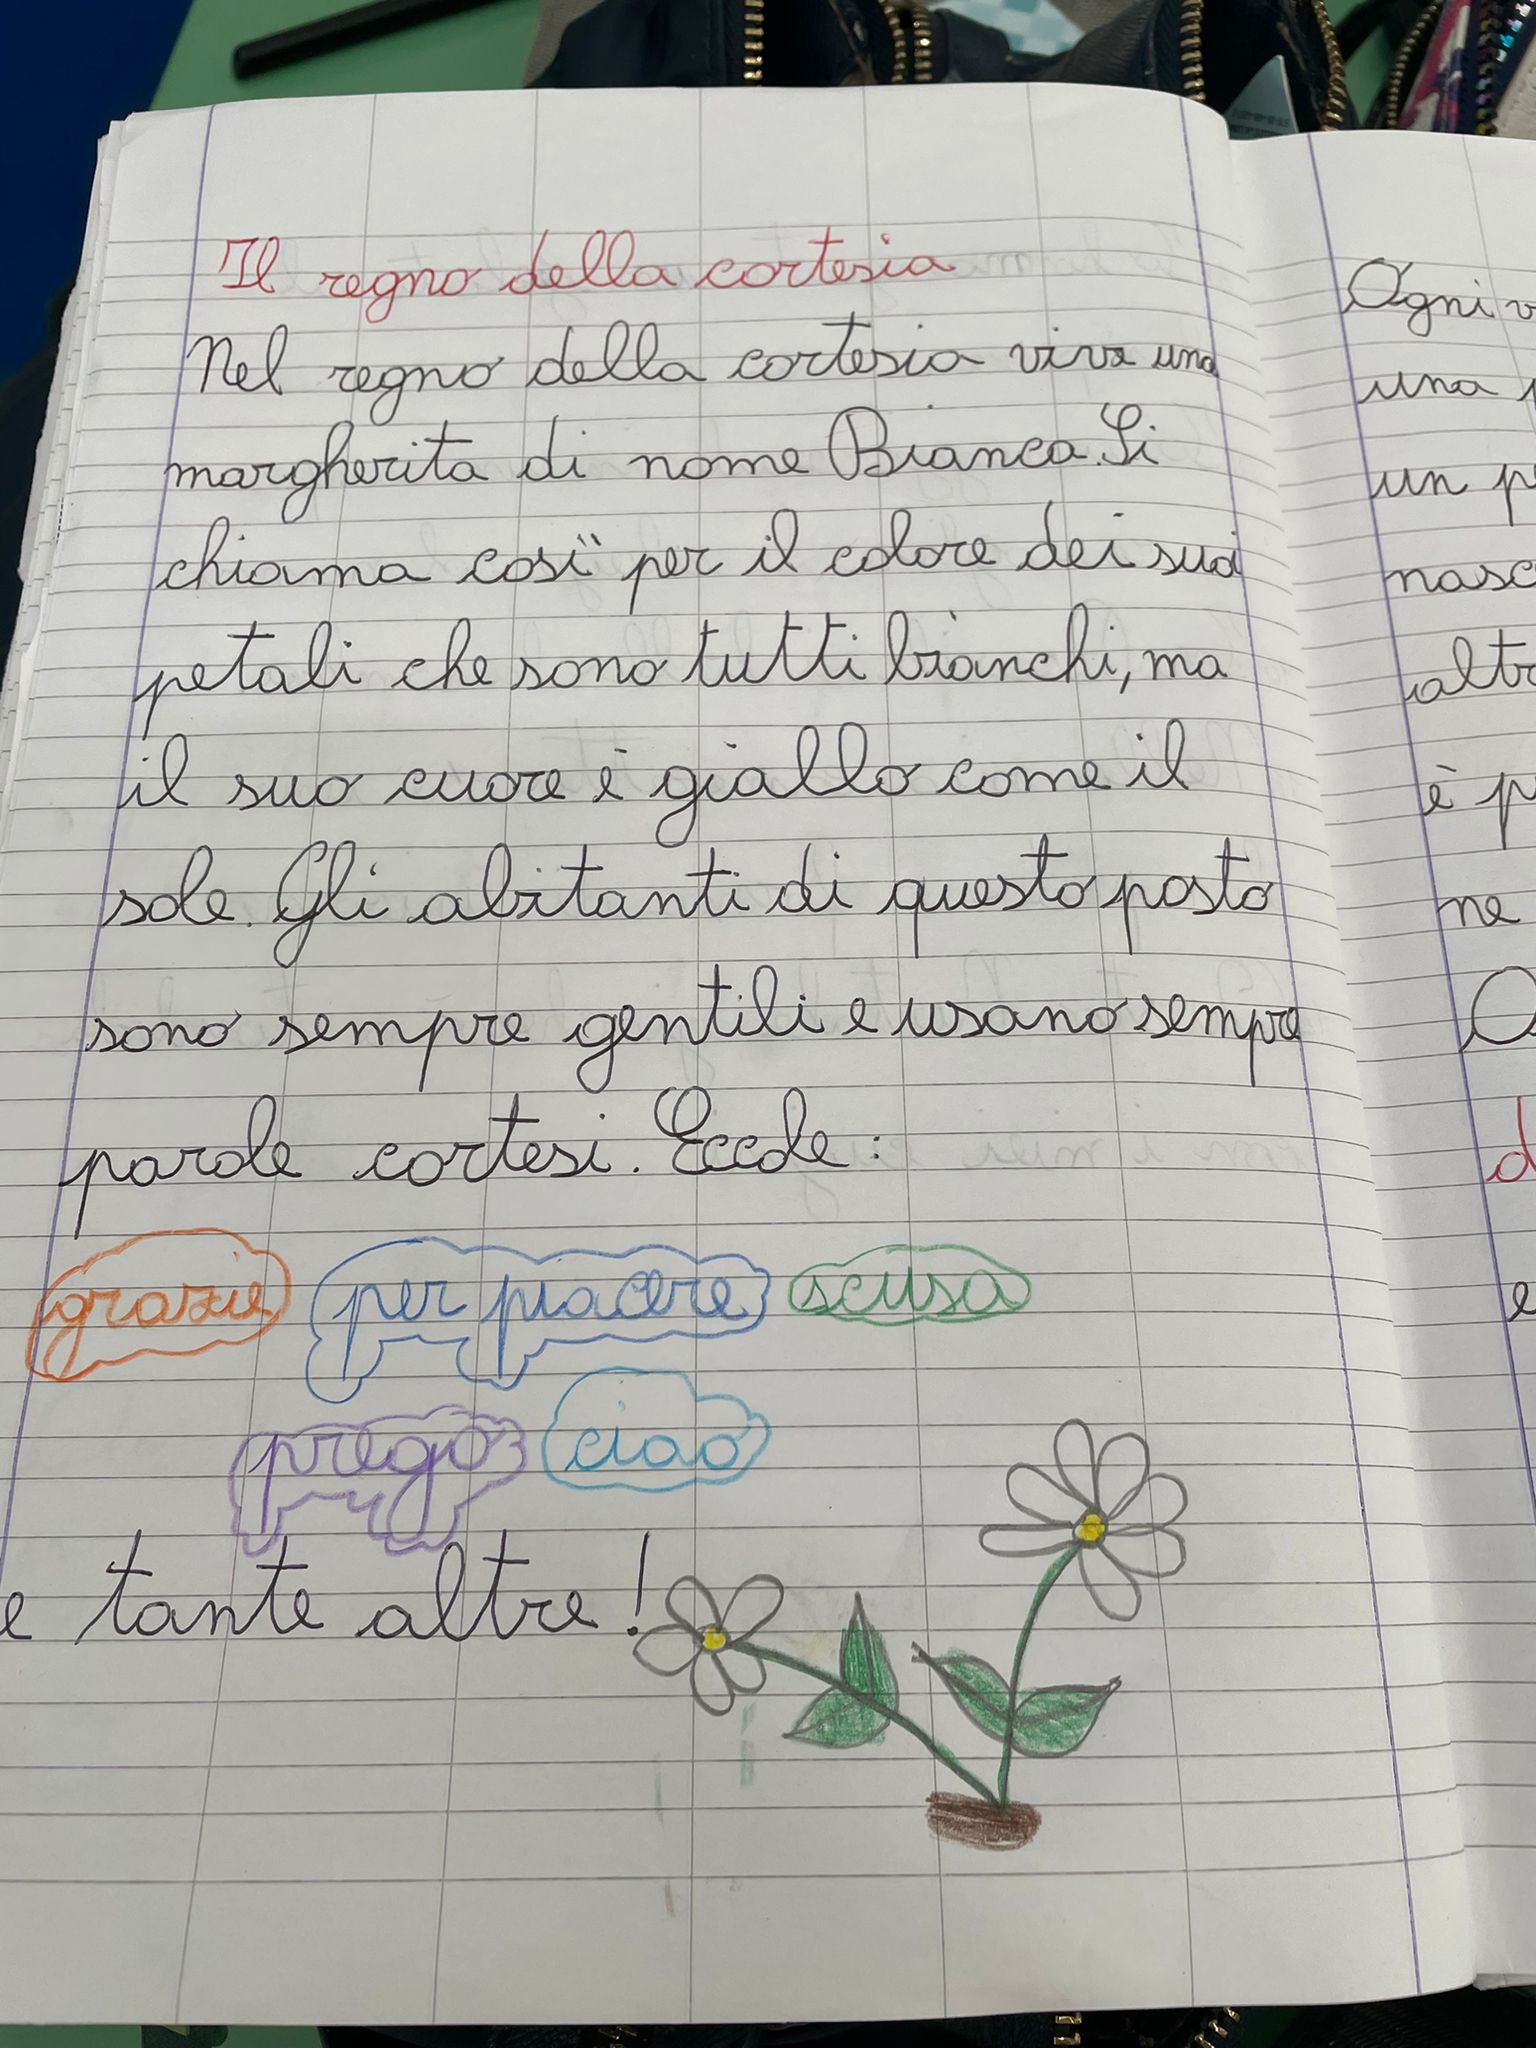 Il regno della cortesia
Nel regno della cortesia vive una
margherita di nome Bianca. Si
chiama così per il colore dei suoi
petali che sono tutti bianchi, ma
il suo cuore è giallo come il
sole. Gli abitanti di questo posto
sono sempre gentili e usano sempre
parole cortesi. Eccole:
grazie per piacere scusa
prego ciao
e tante altre!
Ogni
una
un
altr
è
ne
d
e